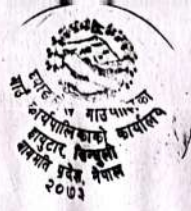 गाउँपालिका
गाउँ कार्यपालिकाको कार्यालय
हायुटार, सिन्धुली
बागमति प्रदेश, नेपाल
२०७३